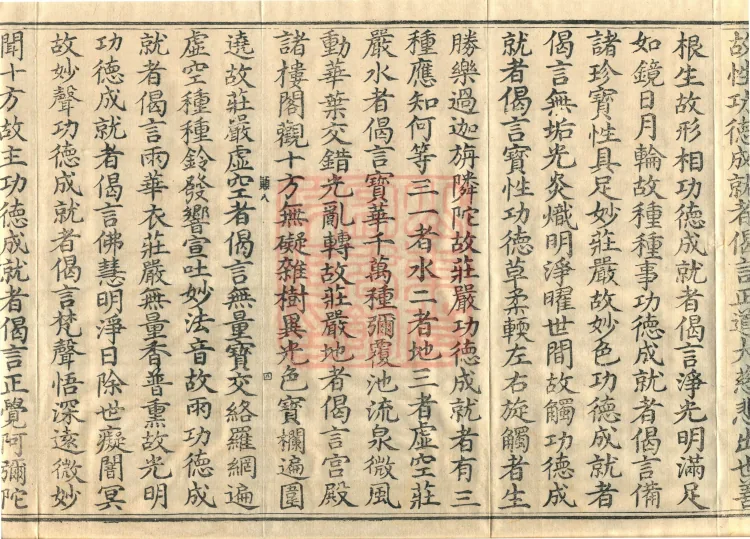 故性功德成就者偈言正道大慈悲出世善
根生故形相功德成就者偈言淨光明滿足
如鏡日月輪故種種事功德成就者偈言備
諸珍寶性具足妙莊嚴故妙色功德成就者
偈言無垢光炎熾明淨曜世間故觸功德成
就者偈言寶性功德草柔軟左右旋觸者生
勝樂過迦旃隣陀故莊嚴功德成就者有三
種應知何等三一者水二者地三者虛空莊
嚴水者偈言寶華千萬種彌覆池流泉微風
動華葉交錯光亂轉故莊嚴地者偈言宮殿
諸樓閣觀十方無礙雜樹異光色寶欄遍圍
遶故莊嚴虛空者偈言無量寶交絡羅網遍
虛空種種鈴發響宣吐妙法音故雨功德成
就者偈言雨華衣莊嚴無量香普熏故光明
功德成就者偈言佛慧明淨日除世癡闇冥
故妙聲功德成就者偈言梵聲悟深遠微妙
聞十方故主功德成就者偈言正覺阿彌陀